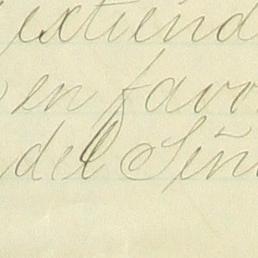 extiend
en favo
del Señ